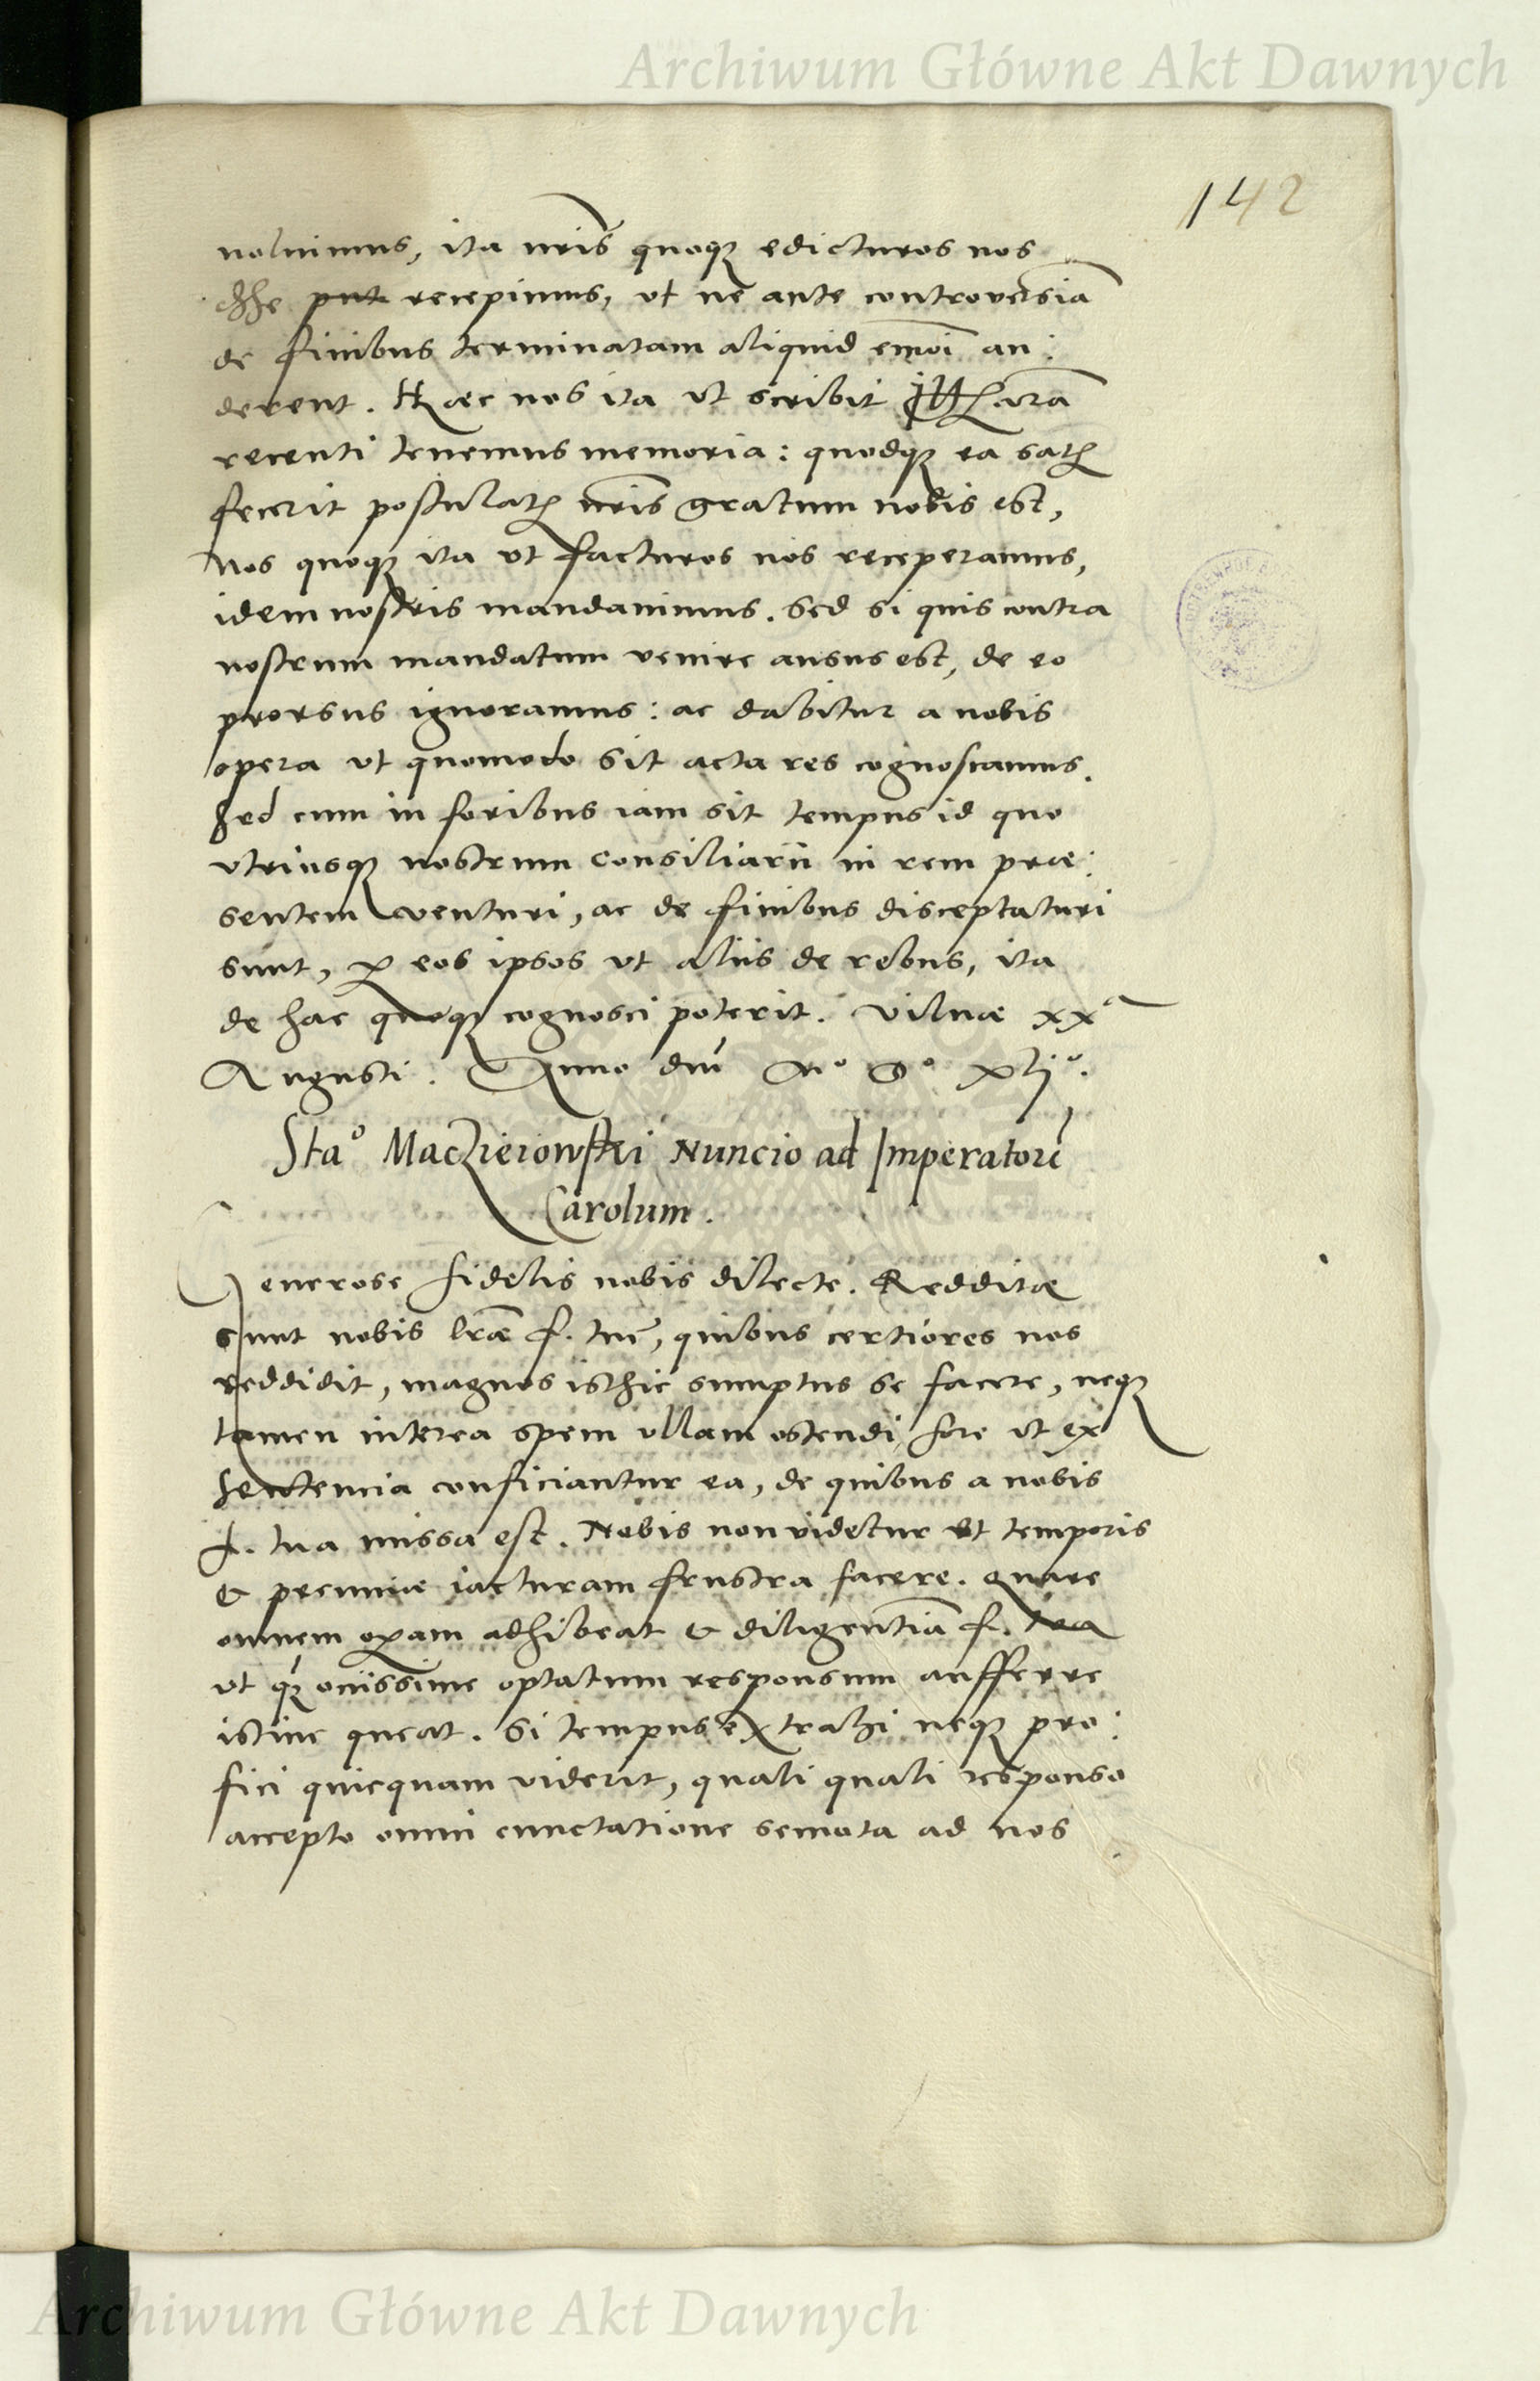 Archiwum Główne Akt Dawnych
142
noluimus, ita nr̃is quoqꝫ edicturos nos
esse recepimus, ut ne ante controuersiã
de finibus terminatam aliquid eiusmoi au:
derent. Haec nos ita ut scribit Ill. vrã
recenti tenemus memoria: quodqꝫ ea satis
fecerit postulatis nr̃is gratum nobis est,
Nos quoqꝫ ita ut facturos nos receperamus,
idem nostris mandauimus. Sed si quis contra
nostrum mandatum venire ausus est, de eo
prorsus ignoramus: ac dabitur a nobis
opera ut quomodo sit acta res cognoscamus.
Sed cum in foribus iam sit tempus id quo
utriusqꝫ nostrum consiliarii in rem præ:
sentem venturi, ac de finibus disceptaturi
sunt, ꝑ eos ipsos ut aliis de rebus, ita
de hac quoqꝫ cognosci poterit. Vilnæ xxª
Augusti. Anno dnĩ M° D° xlj°.
Sta° Maczieiowski Nuncio ad Imperatorẽ
Carolum.
Generose fidelis nobis dilecte. Redditæ
sunt nobis lr̃æ f. tuæ, quibus certiores nos
reddidit, magnos isthic sumptus se facere, neqꝫ
tamen interea spem ullam ostendi, fore ut ex
sententia conficiantur ea, de quibus a nobis
f. tua missa est. Nobis non videtur ut temporis
& pecuniæ iacturam frustra facere. Quare
omnem oꝑam adhibeat & diligentiã f. tua
ut qꝫ ocissime optatum responsum aufferre
istinc queat. Si tempus extrahi neqꝫ pro:
fici quicquam viderit, quali quali responso
accepto omni cunctatione semota ad nos
Archiwum Główne Akt Dawnych